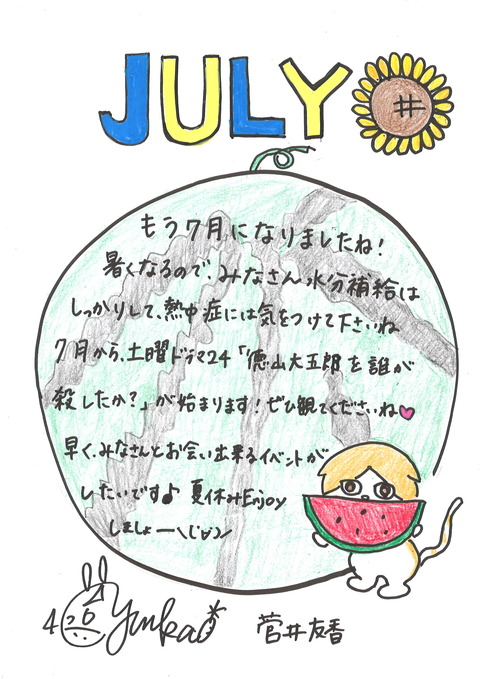 JULY #
もう7月になりましたね!
暑くなるので、みなさん水分補給は
しっかりして、熱中症には気をつけて下さいね
7月から、土曜ドラマ24「徳山大五郎を誰が
殺したか?」が始まります!ぜひ観てくださいね♥
早く、みなさんとお会い出来るイベントが
したいです♪ 夏休みEnjoy
しましょー\(^∀^)/
46 Yuuka 菅井友香